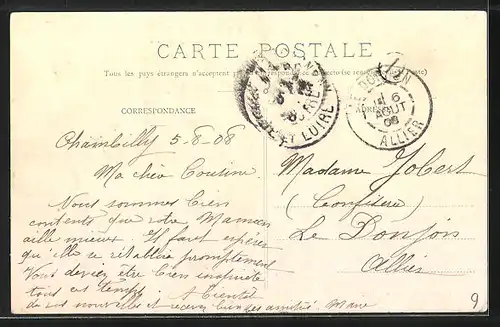 CARTE POSTALE
Tous les pays étrangers n'acceptent pas la correspondance au recto (se renseigner à la poste)
CORRESPONDANCE
Chambilly 5-8-08
Ma chère Cousine
Nous sommes bien
contents que votre Maman
aille mieux. Il faut espérer
qu'elle se rétablira promptement
Vous devez être bien inquiète
tous ces temps. A bientôt
de vos nouvelles et recevez bien des amitiés. Marie
ET LOIRE
LE DONJON
6
AOUT
08
ALLIER
Madame Jobert
(Confiserie)
Le Donjon
Allier
9